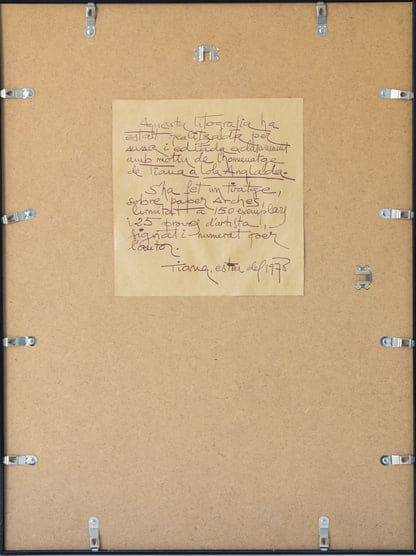 Aquesta litografia ha
estat realitzada per
i editada exclusivament
amb motiu de l'homenatge
de Tiana a Lola Anglada.
S'ha fet un tiratge,
sobre paper Arches,
limitat a 150 exemplars
i 25 proves d'artista,
signat i numerat per
l'autor.
Tiana, estiu del 1978